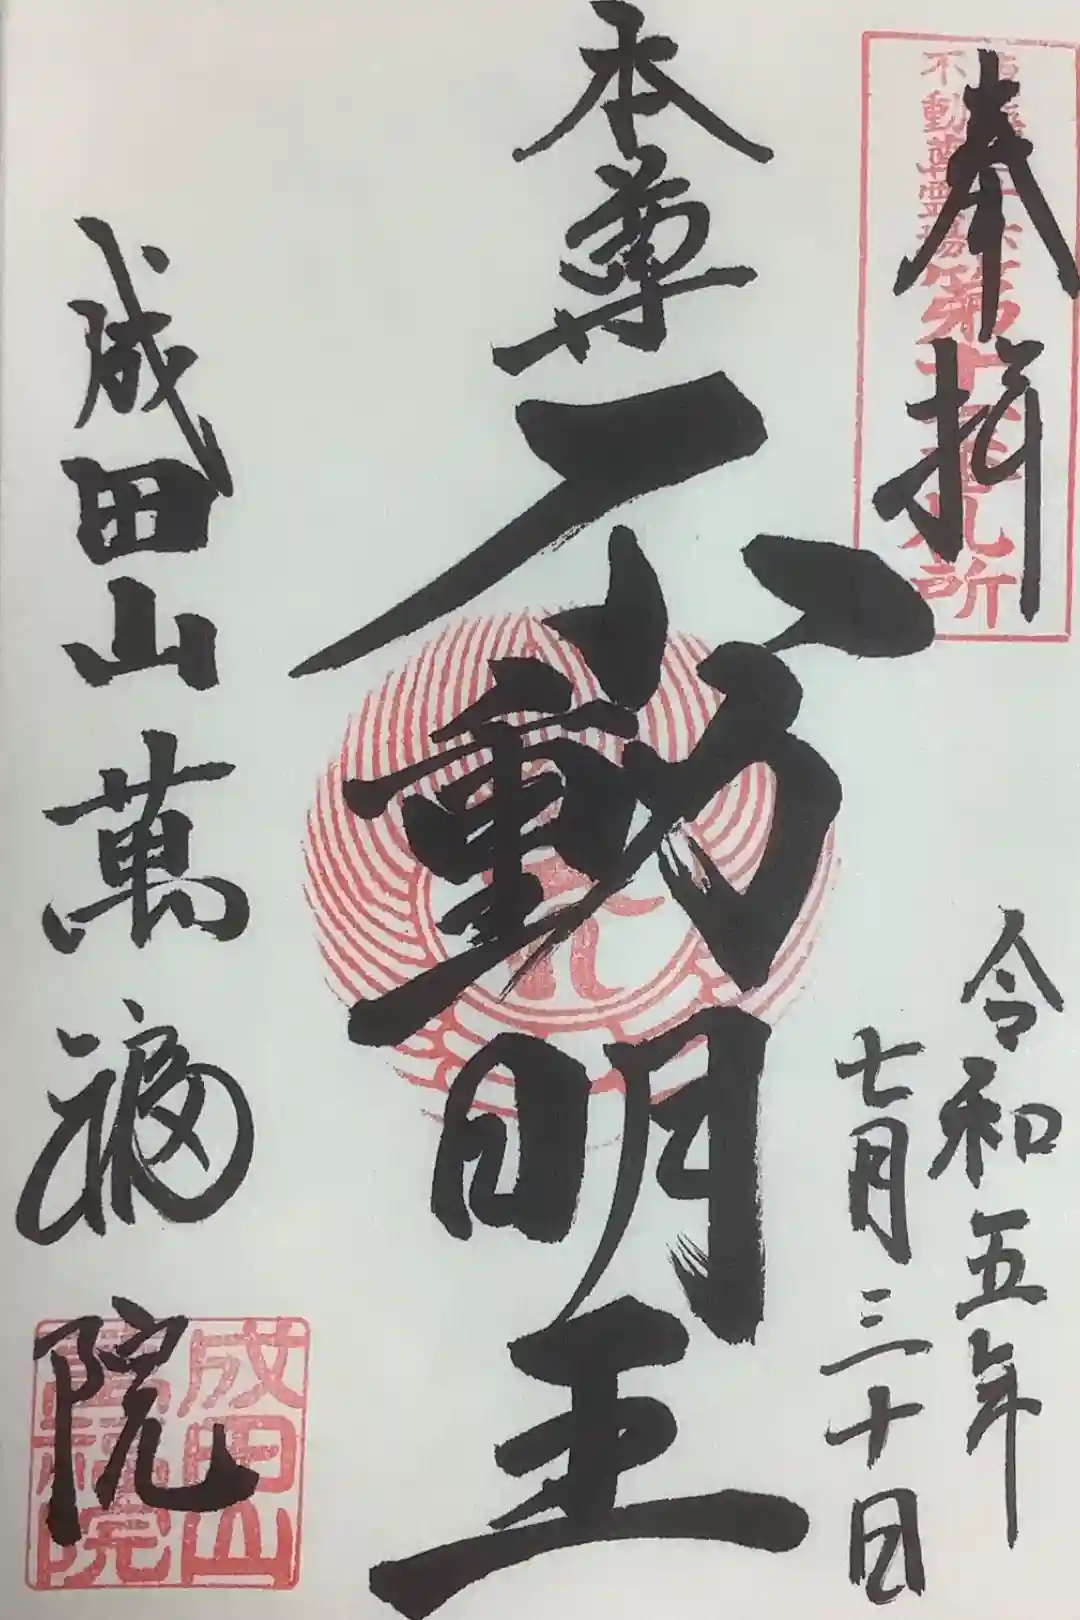 奉拝
不動尊霊場
札所
令和五年
七月三十日
本尊
不動明王
成田山萬福院
成田山
萬福院